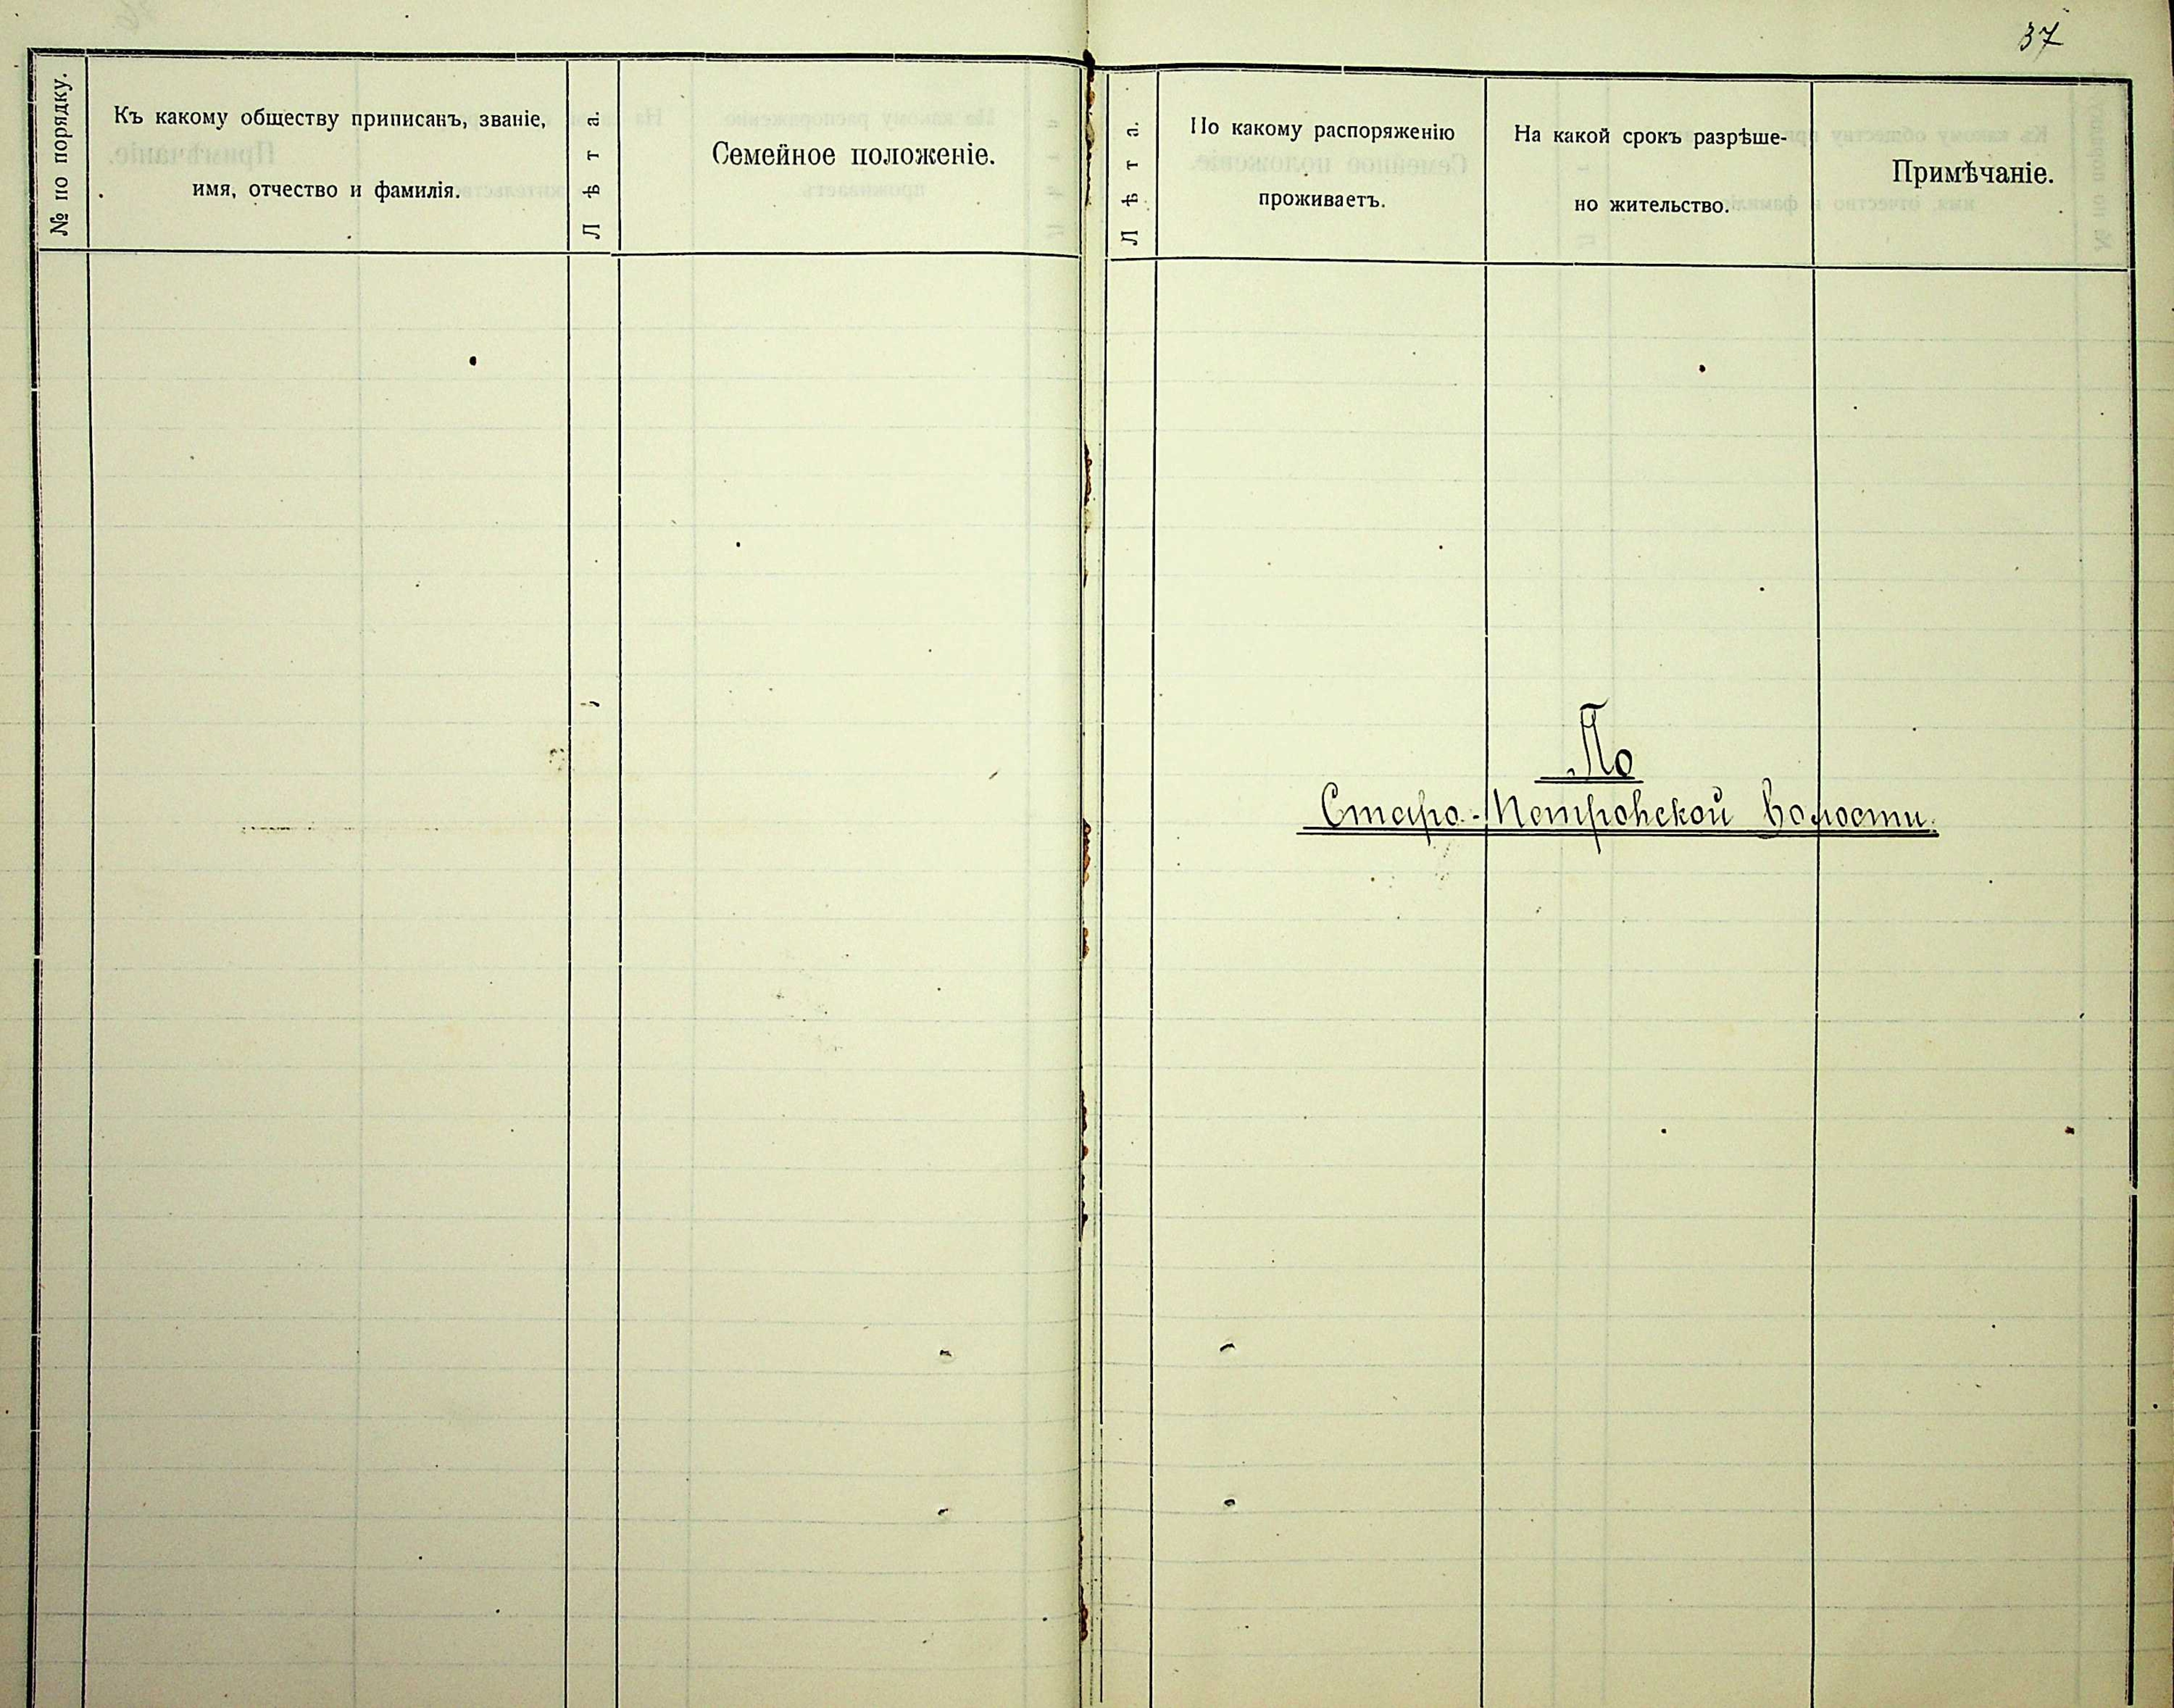 37
№ по порядку.
Къ какому обществу приписанъ, званіе,
имя, отчество и фамилія.
Лѣта.
Семейное положеніе.
Лѣта.
По какому распоряженію
проживаетъ.
На какой срокъ разрѣше-
но жительство.
Примѣчаніе.
По
Старо-Петровской волости.